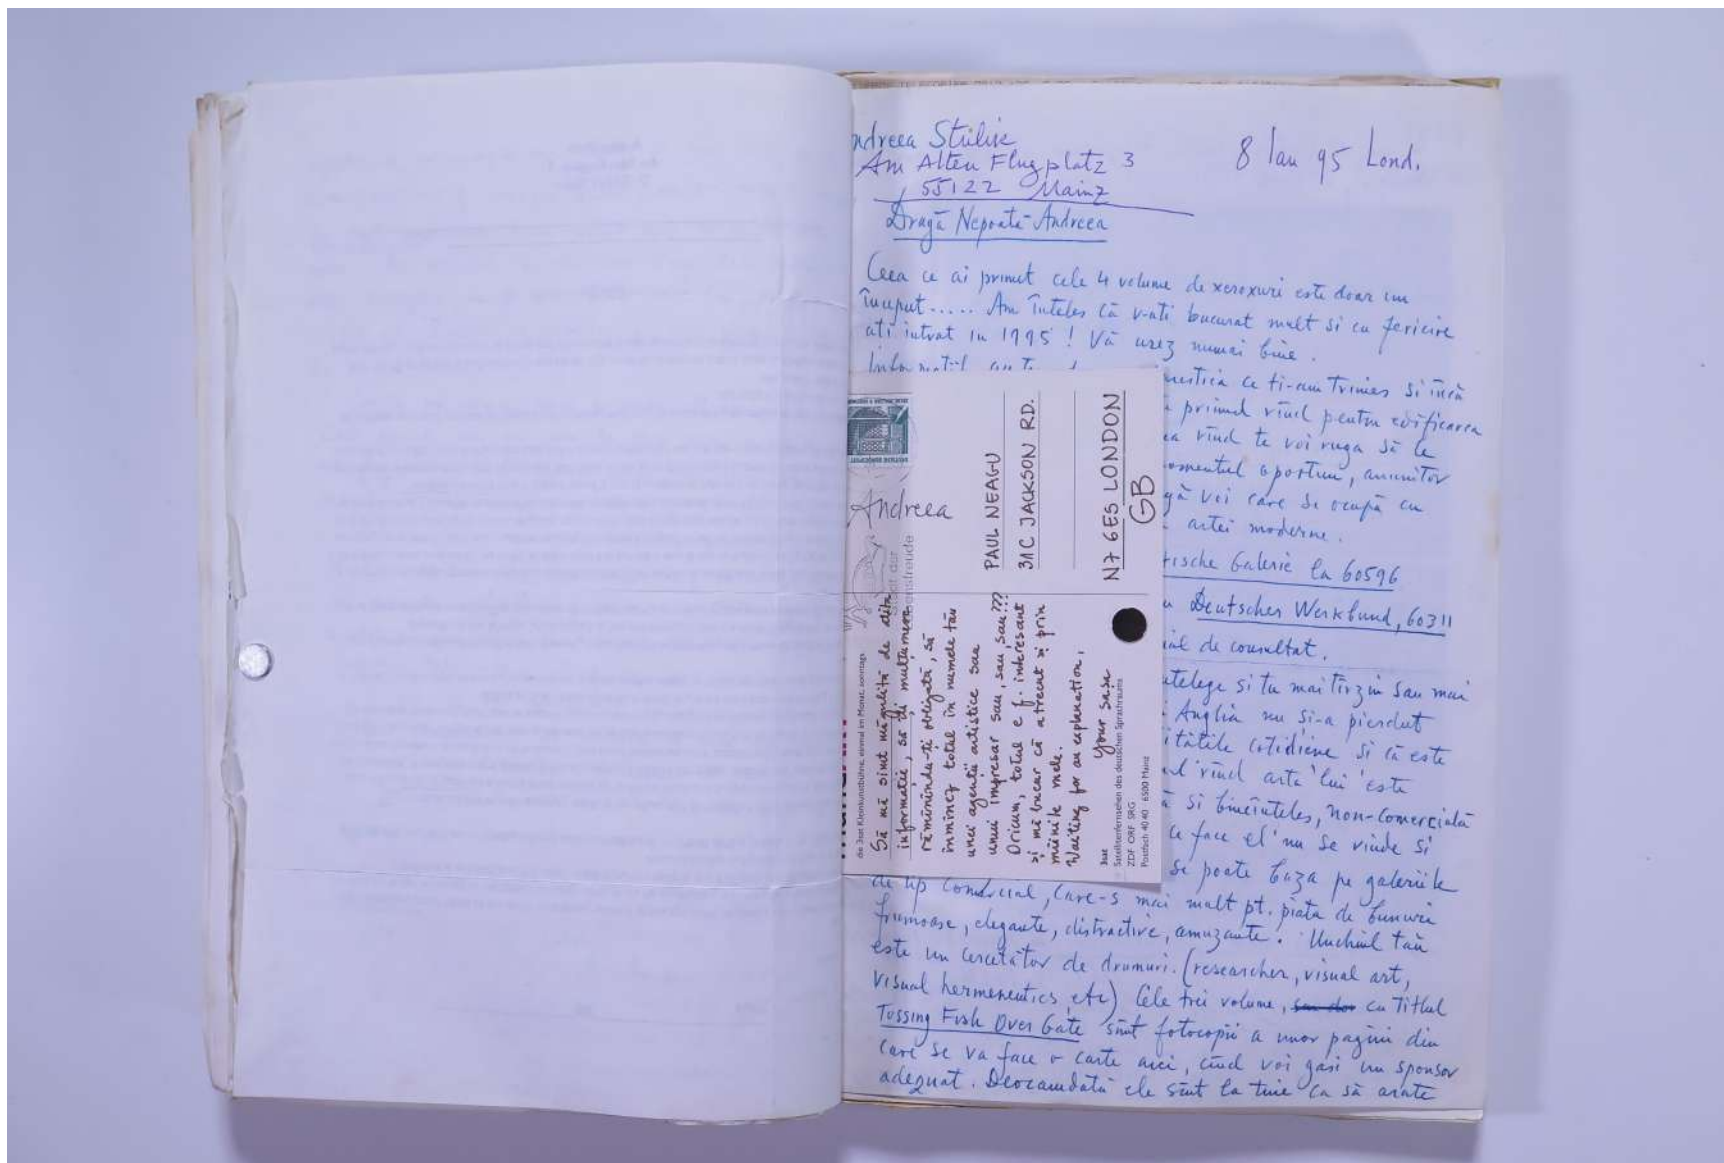 Andreea Stülik
Am Alten Flugplatz 3
55122 Mainz
8 Ian 95 Lond.
Dragă Nepoată Andreea
Ceea ce ai primit cele 4 volume de xeroxuri este doar un
început..... Am înteles că v-ati bucurat mult si cu fericire
ati intrat in 1995! Vă urez numai bine.
ce ti-am trimes si încă
primul rînd pentru edificarea
rînd te voi ruga să le
momentul oportun, anumitor
voi care se ocupă cu
artei moderne.
Galerie la 60596
Deutscher Werkbund, 60311
de consultat.
si tu mai tîrziu sau mai
Anglia nu si-a pierdut
cotidiene si că este
rînd arta 'lui' este
si bineînteles, non-comercială
ce face el nu se vinde si
se poate baza pe galeriile
de tip comercial, care-s mai mult pt. piata de bunuri
frumoase, elegante, distractive, amuzante. Unchiul tău
este un cercetător de drumuri. (researcher, visual art,
visual hermeneutics etc) Cele trei volume, cu Titlul
Tossing Fish Over Gate sînt fotocopii a unor pagini din
care se va face o carte aici, cînd voi găsi un sponsor
adequat. Deocamdată ele sînt la tine ca să arate
Andreea
PAUL NEAGU
31C JACKSON RD.
N7 6ES LONDON
GB
die 3sat Kleinkunstbühne, einmal im Monat, sonntags
Să mă simt măgulită de atîta
informatie, să-ți mulțumesc
rămînîndu-ți obligată, să
înmînez totul în numele tău
unei agenții artistice sau
unui impresar sau, sau, sau???
Oricum, totul e f. interesant!!!
și mă bucur că a trecut și prin
mîinile mele.
Waiting for an explanation,
your
3sat
Satellitenfernsehen des deutschen Sprachraums
ZDF ORF SRG
Postfach 40 40 6500 Mainz